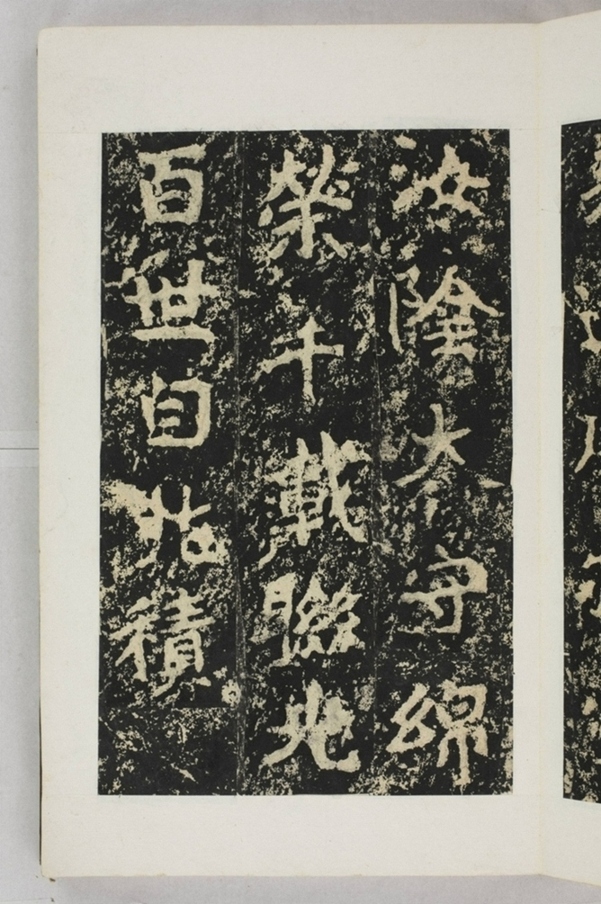 汝陰太守綿
榮千載聯光
百世自茲積